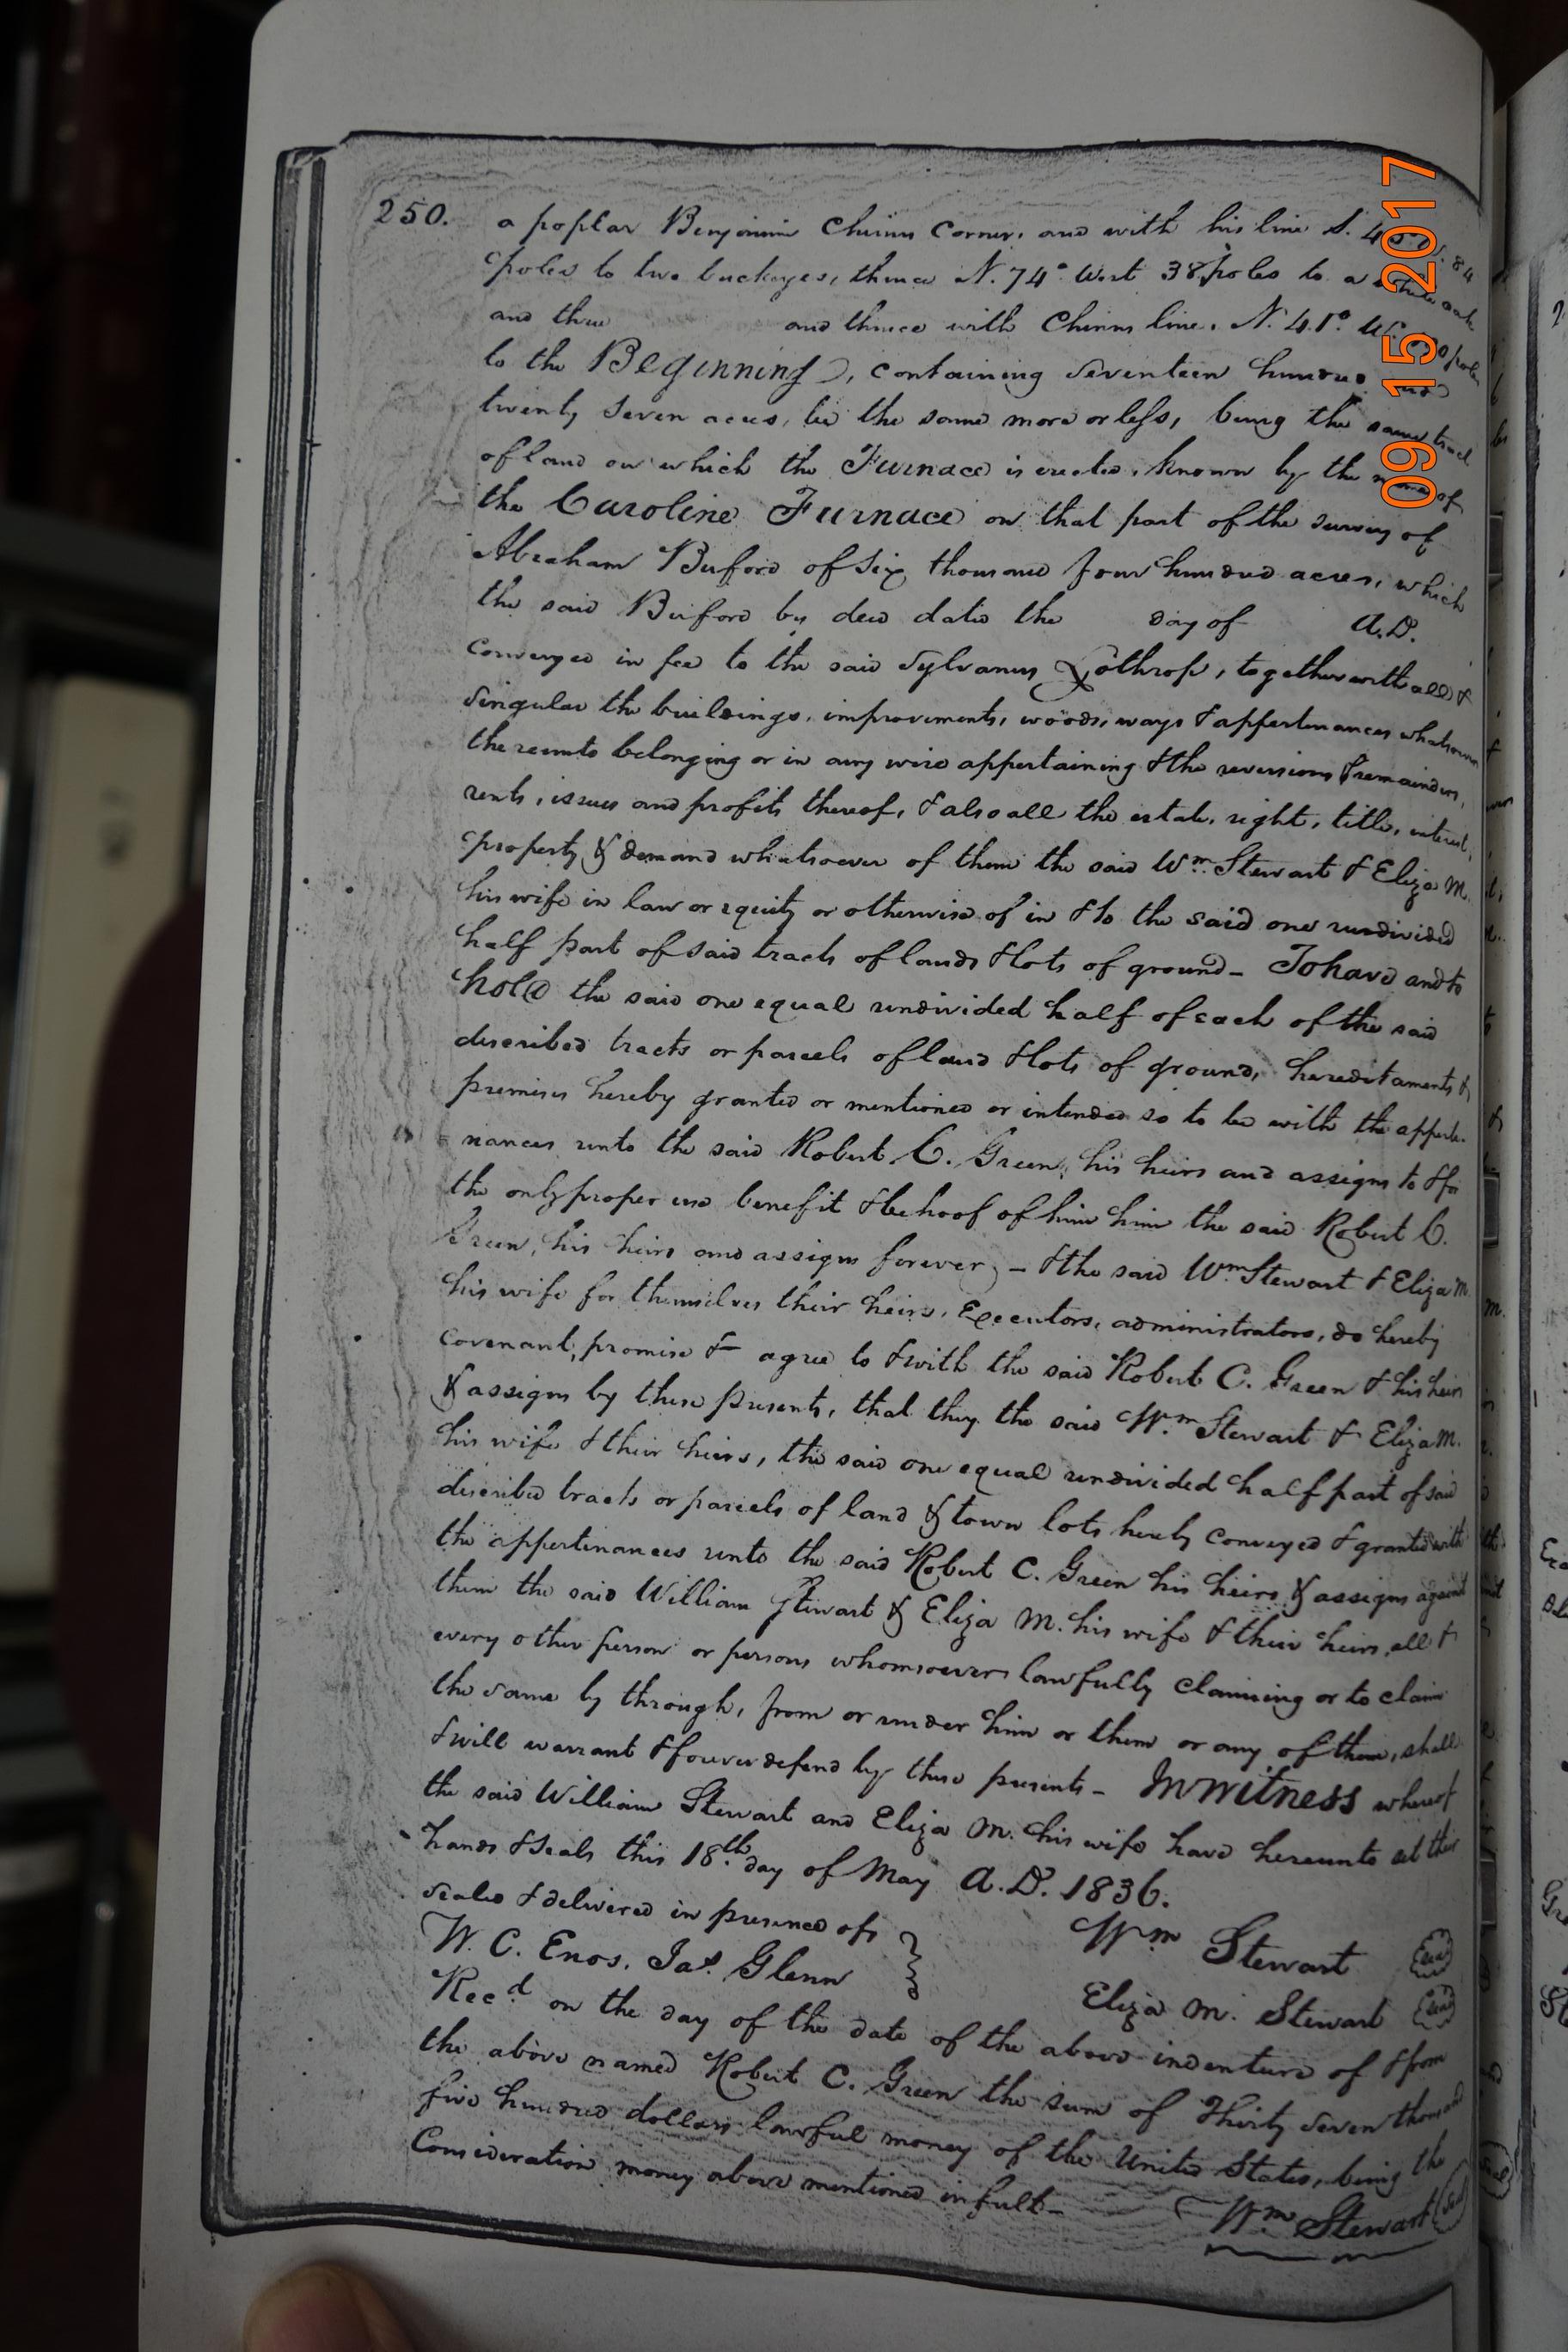 250.
a poplar Benjamin Chinns Corner, and with his line S.
poles to two buckeyes, thence N. 74° West 38 poles to a white oak
and three and thence with Chinns line, N. 41° W. poles
to the Beginning, containing Seventeen hundred and
twenty Seven acres, be the same more or less, being the same tract
of land on which the Furnace is erected, known by the name of
the Caroline Furnace on that part of the survey of
Abraham Buford of Six thousand four hundred acres, which
the said Buford by deed dated the day of A.D.
Conveyed in fee to the said Sylvanus Lothrop, together with all &
Singular the buildings, improvements, woods, ways & appertenances whatsoever
thereunto belonging or in any wise appertaining & the reversions & remainders,
rents, issues and profits thereof, & also all the estate, right, title, interest,
property & demand whatsoever of them the said Wm. Stewart & Eliza M.
his wife in law or equity or otherwise of in & to the said one undivided
half part of said tracts of lands & lots of ground - To have and to
hold the said one equal undivided half of each of the said
described tracts or parcels of land & lots of ground, hereditaments &
premises hereby granted or mentioned or intended so to be with the apperte-
nances unto the said Robert C. Green, his heirs and assigns to & for
the only proper use benefit & behoof of him him the said Robert C.
Green, his heirs and assigns forever, - & the said Wm Stewart & Eliza M.
his wife for themselves their heirs, Executors, administrators, do hereby
covenant, promise & agree to & with the said Robert C. Green & his heirs
& assigns by these presents, that they the said Wm. Stewart & Eliza M.
his wife & their heirs, the said one equal undivided half part of said
described tracts or parcels of land & town lots hereby conveyed & granted with
the appertinances unto the said Robert C. Green his heirs & assigns against
them the said William Stewart & Eliza M. his wife & their heirs, all &
every other person or persons whomsoever lawfully claiming or to claim
the same by through, from or under him or them or any of them, shall
& will warrant & forever defend by these presents - In Witness whereof
the said William Stewart and Eliza M. his wife have hereunto set their
hands & seals this 18th. day of May A.D. 1836.
sealed & delivered in presence of
W. C. Enos, Jas. Glenn
Wm Stewart seal
Eliza M. Stewart seal
Recd. on the day of the date of the above indenture of & from
the above named Robert C. Green the sum of Thirty Seven thousand
five hundred dollars lawful money of the United States, being the
Consideration money above mentioned in full -
Wm Stewart seal
09 15 2017